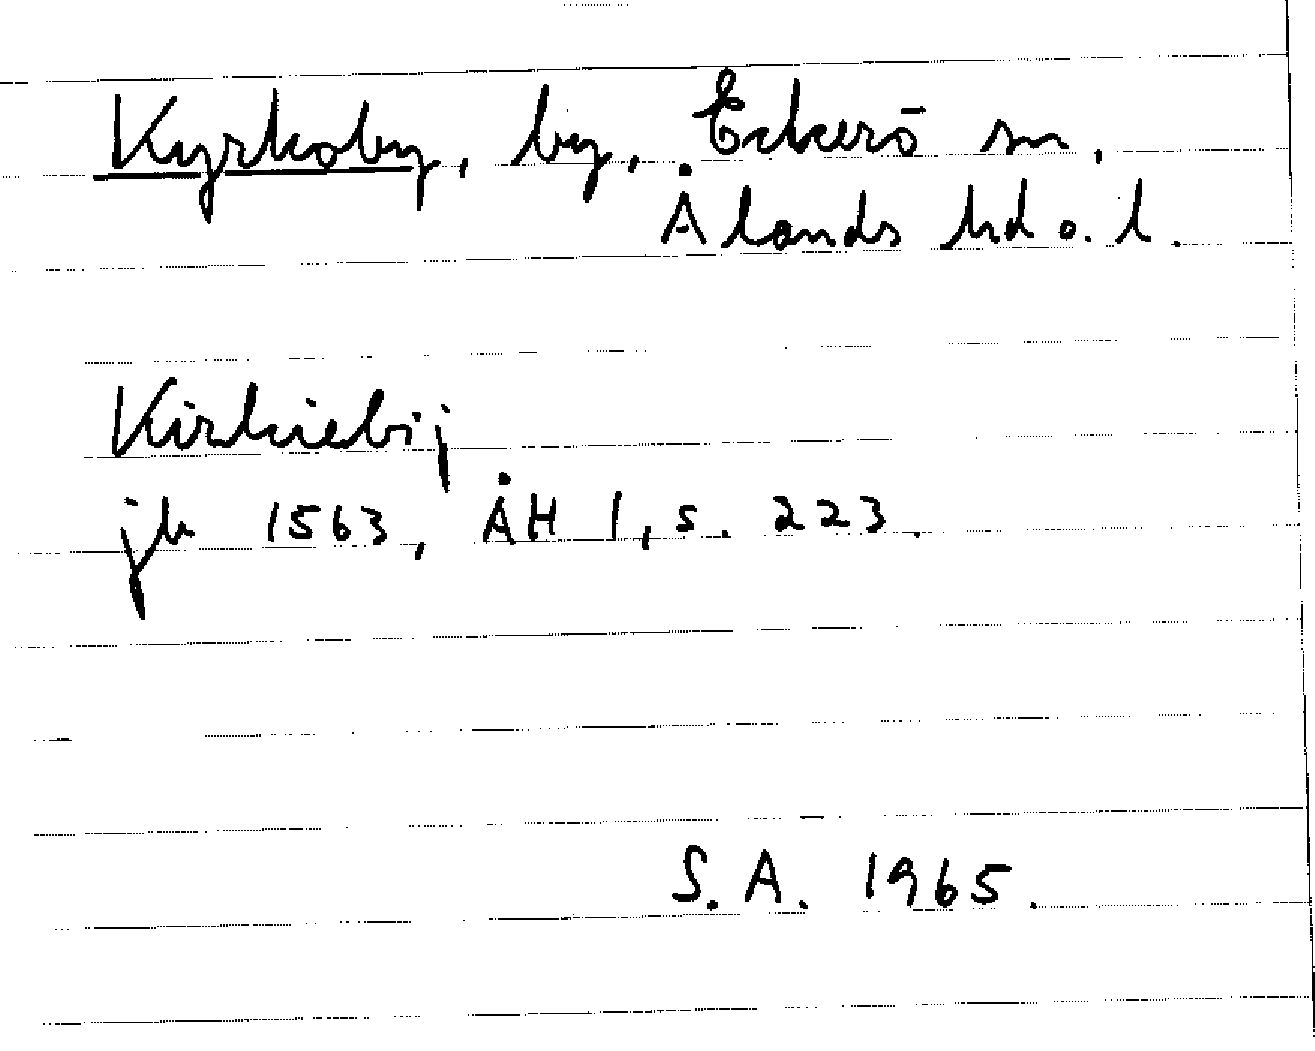 Kyrkoby, by, Eckerö sn,
Ålands hd o. l.
Kirkiebij
jb 1563, ÅH 1, s. 223.
S.A. 1965.